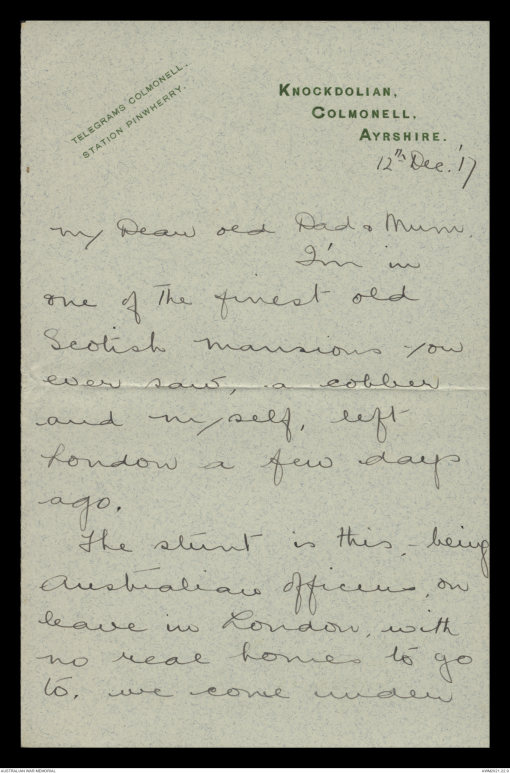 TELEGRAMS COLMONELL.
STATION PINWHERRY.
KNOCKDOLIAN,
COLMONELL,
AYRSHIRE.
12th Dec. '17
My Dear old Dad & Mum,
I'm in
one of The finest old
Scotish mansions you
ever saw, a cobber
and myself, left
London a few days
ago.
The stunt is this, - being
Australian officers, on
leave in London, with
no real homes to go
to. we come under
AUSTRALIAN WAR MEMORIAL